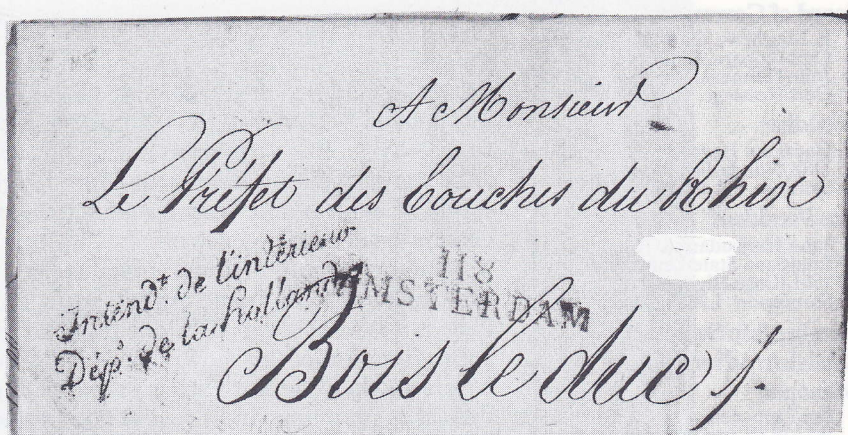 A Monsieur
Le Préfet des Bouches du Rhin
Intend.t de l'intérieur
Dép.s de la hollande
118
AMSTERDAM
Bois le duc